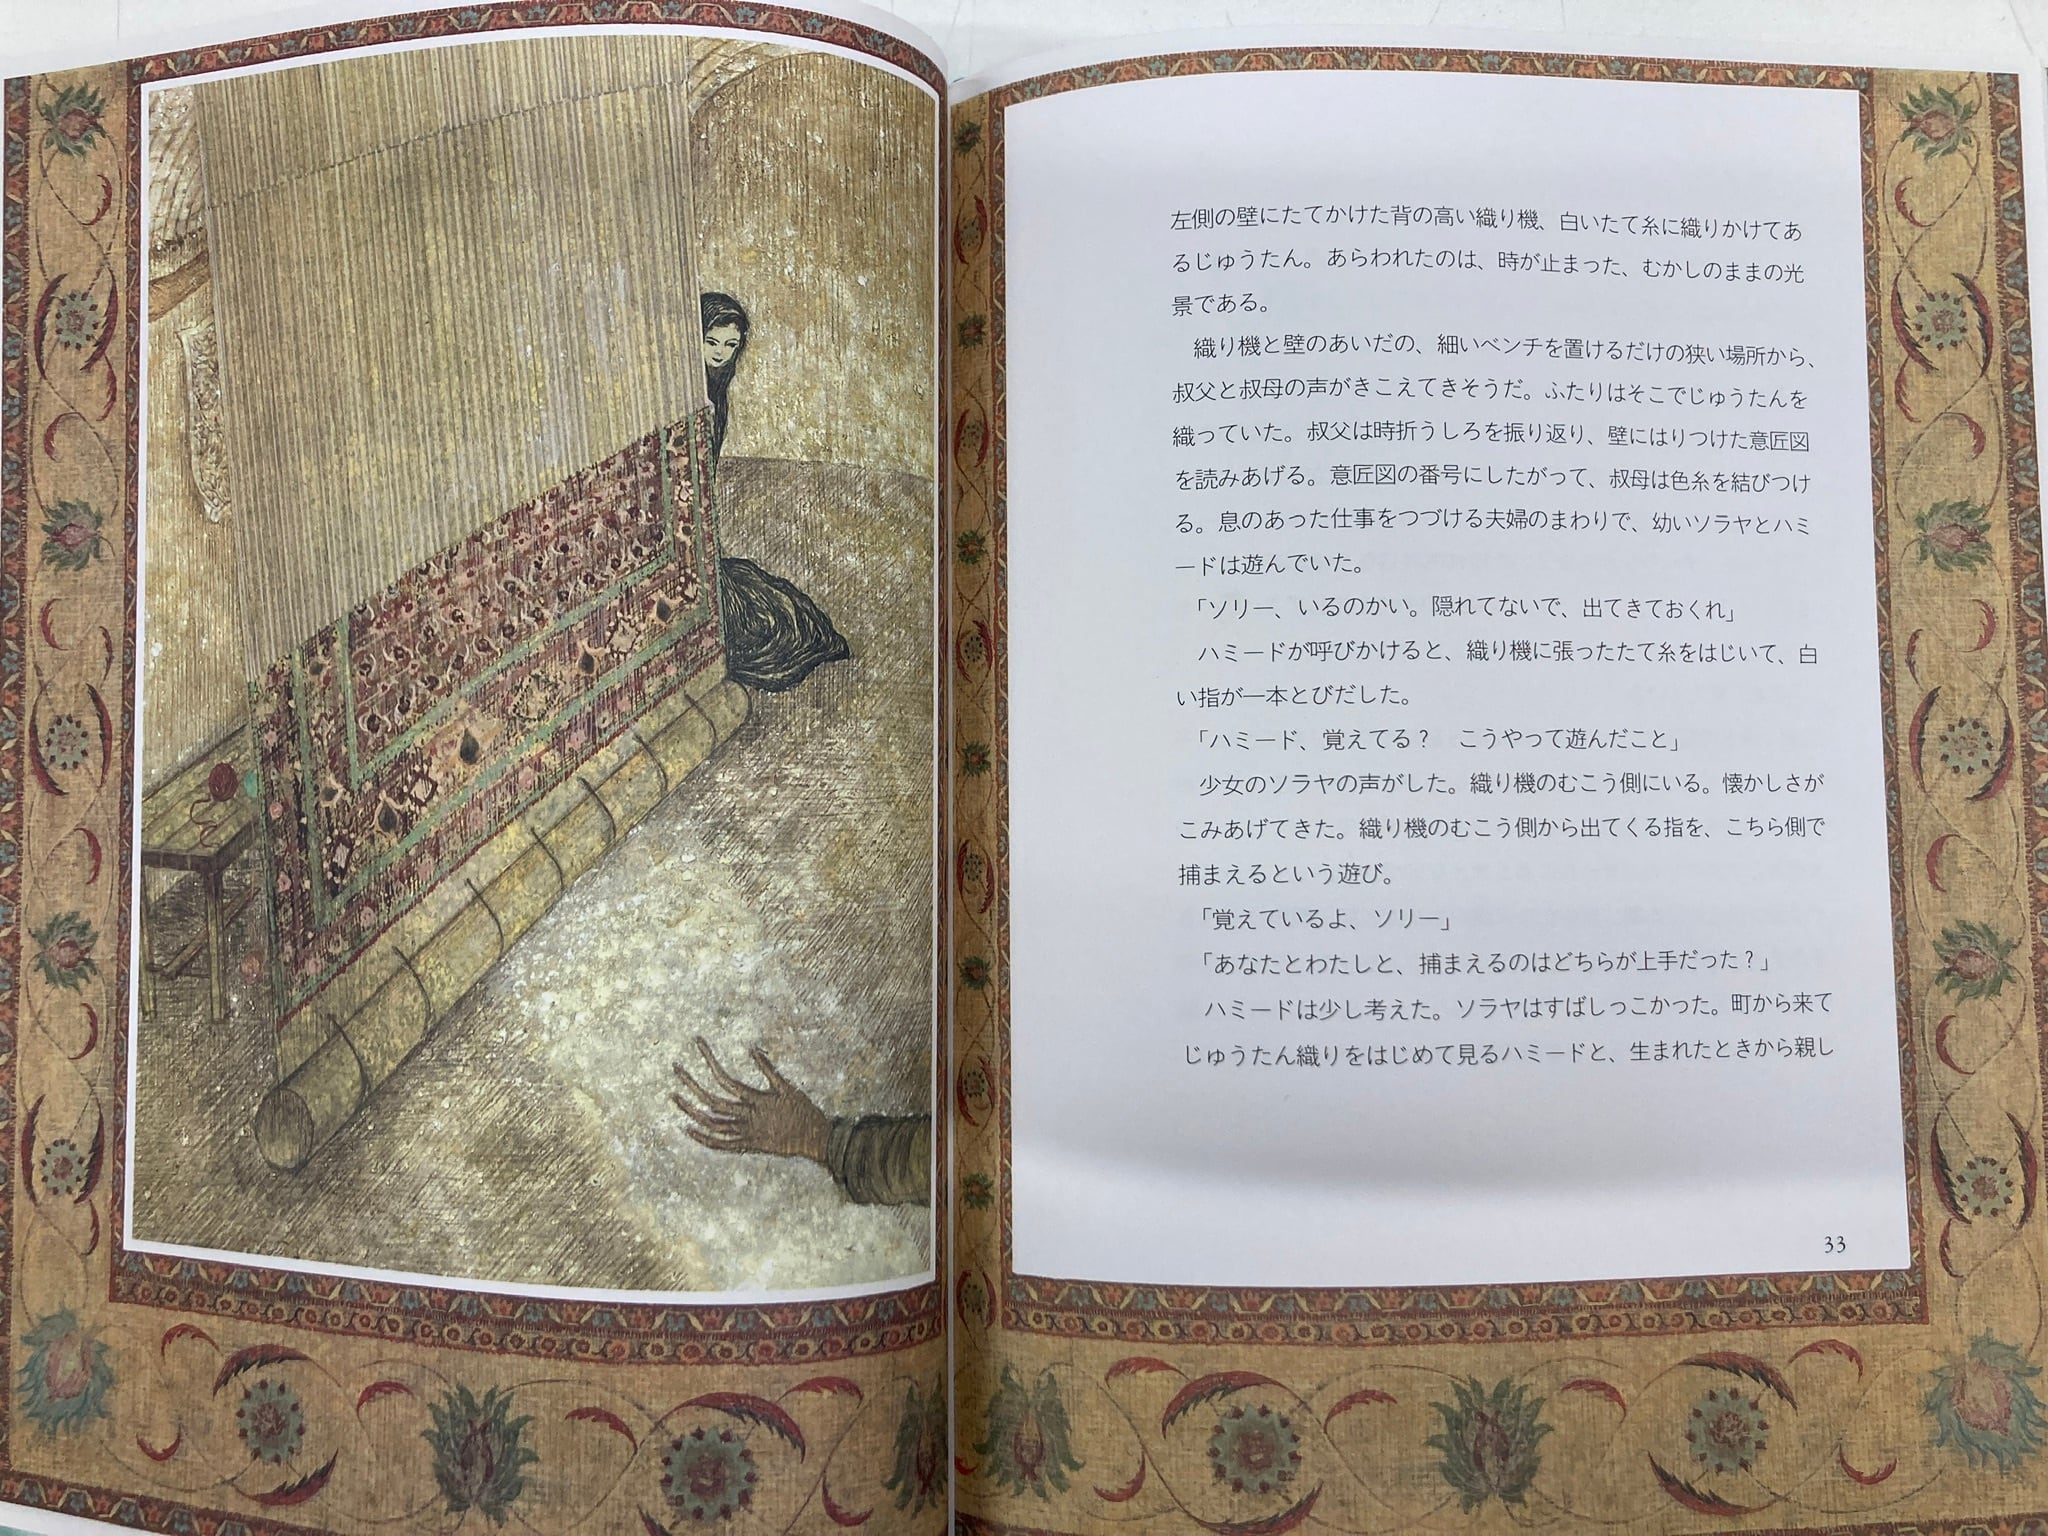 左側の壁にたてかけた背の高い織り機、白いたて糸に織りかけてあ
るじゅうたん。あらわれたのは、時が止まった、むかしのままの光
景である。
織り機と壁のあいだの、細いベンチを置けるだけの狭い場所から、
叔父と叔母の声がきこえてきそうだ。ふたりはそこでじゅうたんを
織っていた。叔父は時折うしろを振り返り、壁にはりつけた意匠図
を読みあげる。意匠図の番号にしたがって、叔母は色糸を結びつけ
る。息のあった仕事をつづける夫婦のまわりで、幼いソラヤとハミ
ードは遊んでいた。
「ソリー、いるのかい。隠れてないで、出てきておくれ」
ハミードが呼びかけると、織り機に張ったたて糸をはじいて、白
い指が一本とびだした。
「ハミード、覚えてる？　こうやって遊んだこと」
少女のソラヤの声がした。織り機のむこう側にいる。懐かしさが
こみあげてきた。織り機のむこう側から出てくる指を、こちら側で
捕まえるという遊び。
「覚えているよ、ソリー」
「あなたとわたしと、捕まえるのはどちらが上手だった？」
ハミードは少し考えた。ソラヤはすばしっこかった。町から来て
じゅうたん織りをはじめて見るハミードと、生まれたときから親し
33